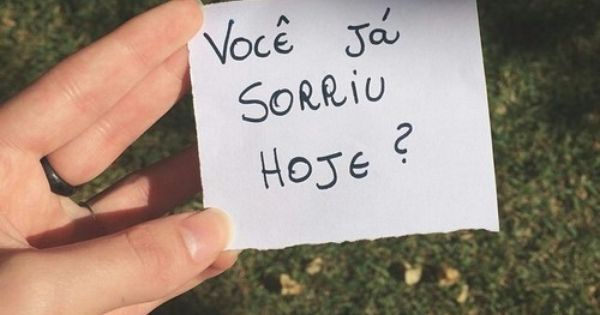 VOCÊ JÁ
SORRIU
HOJE?